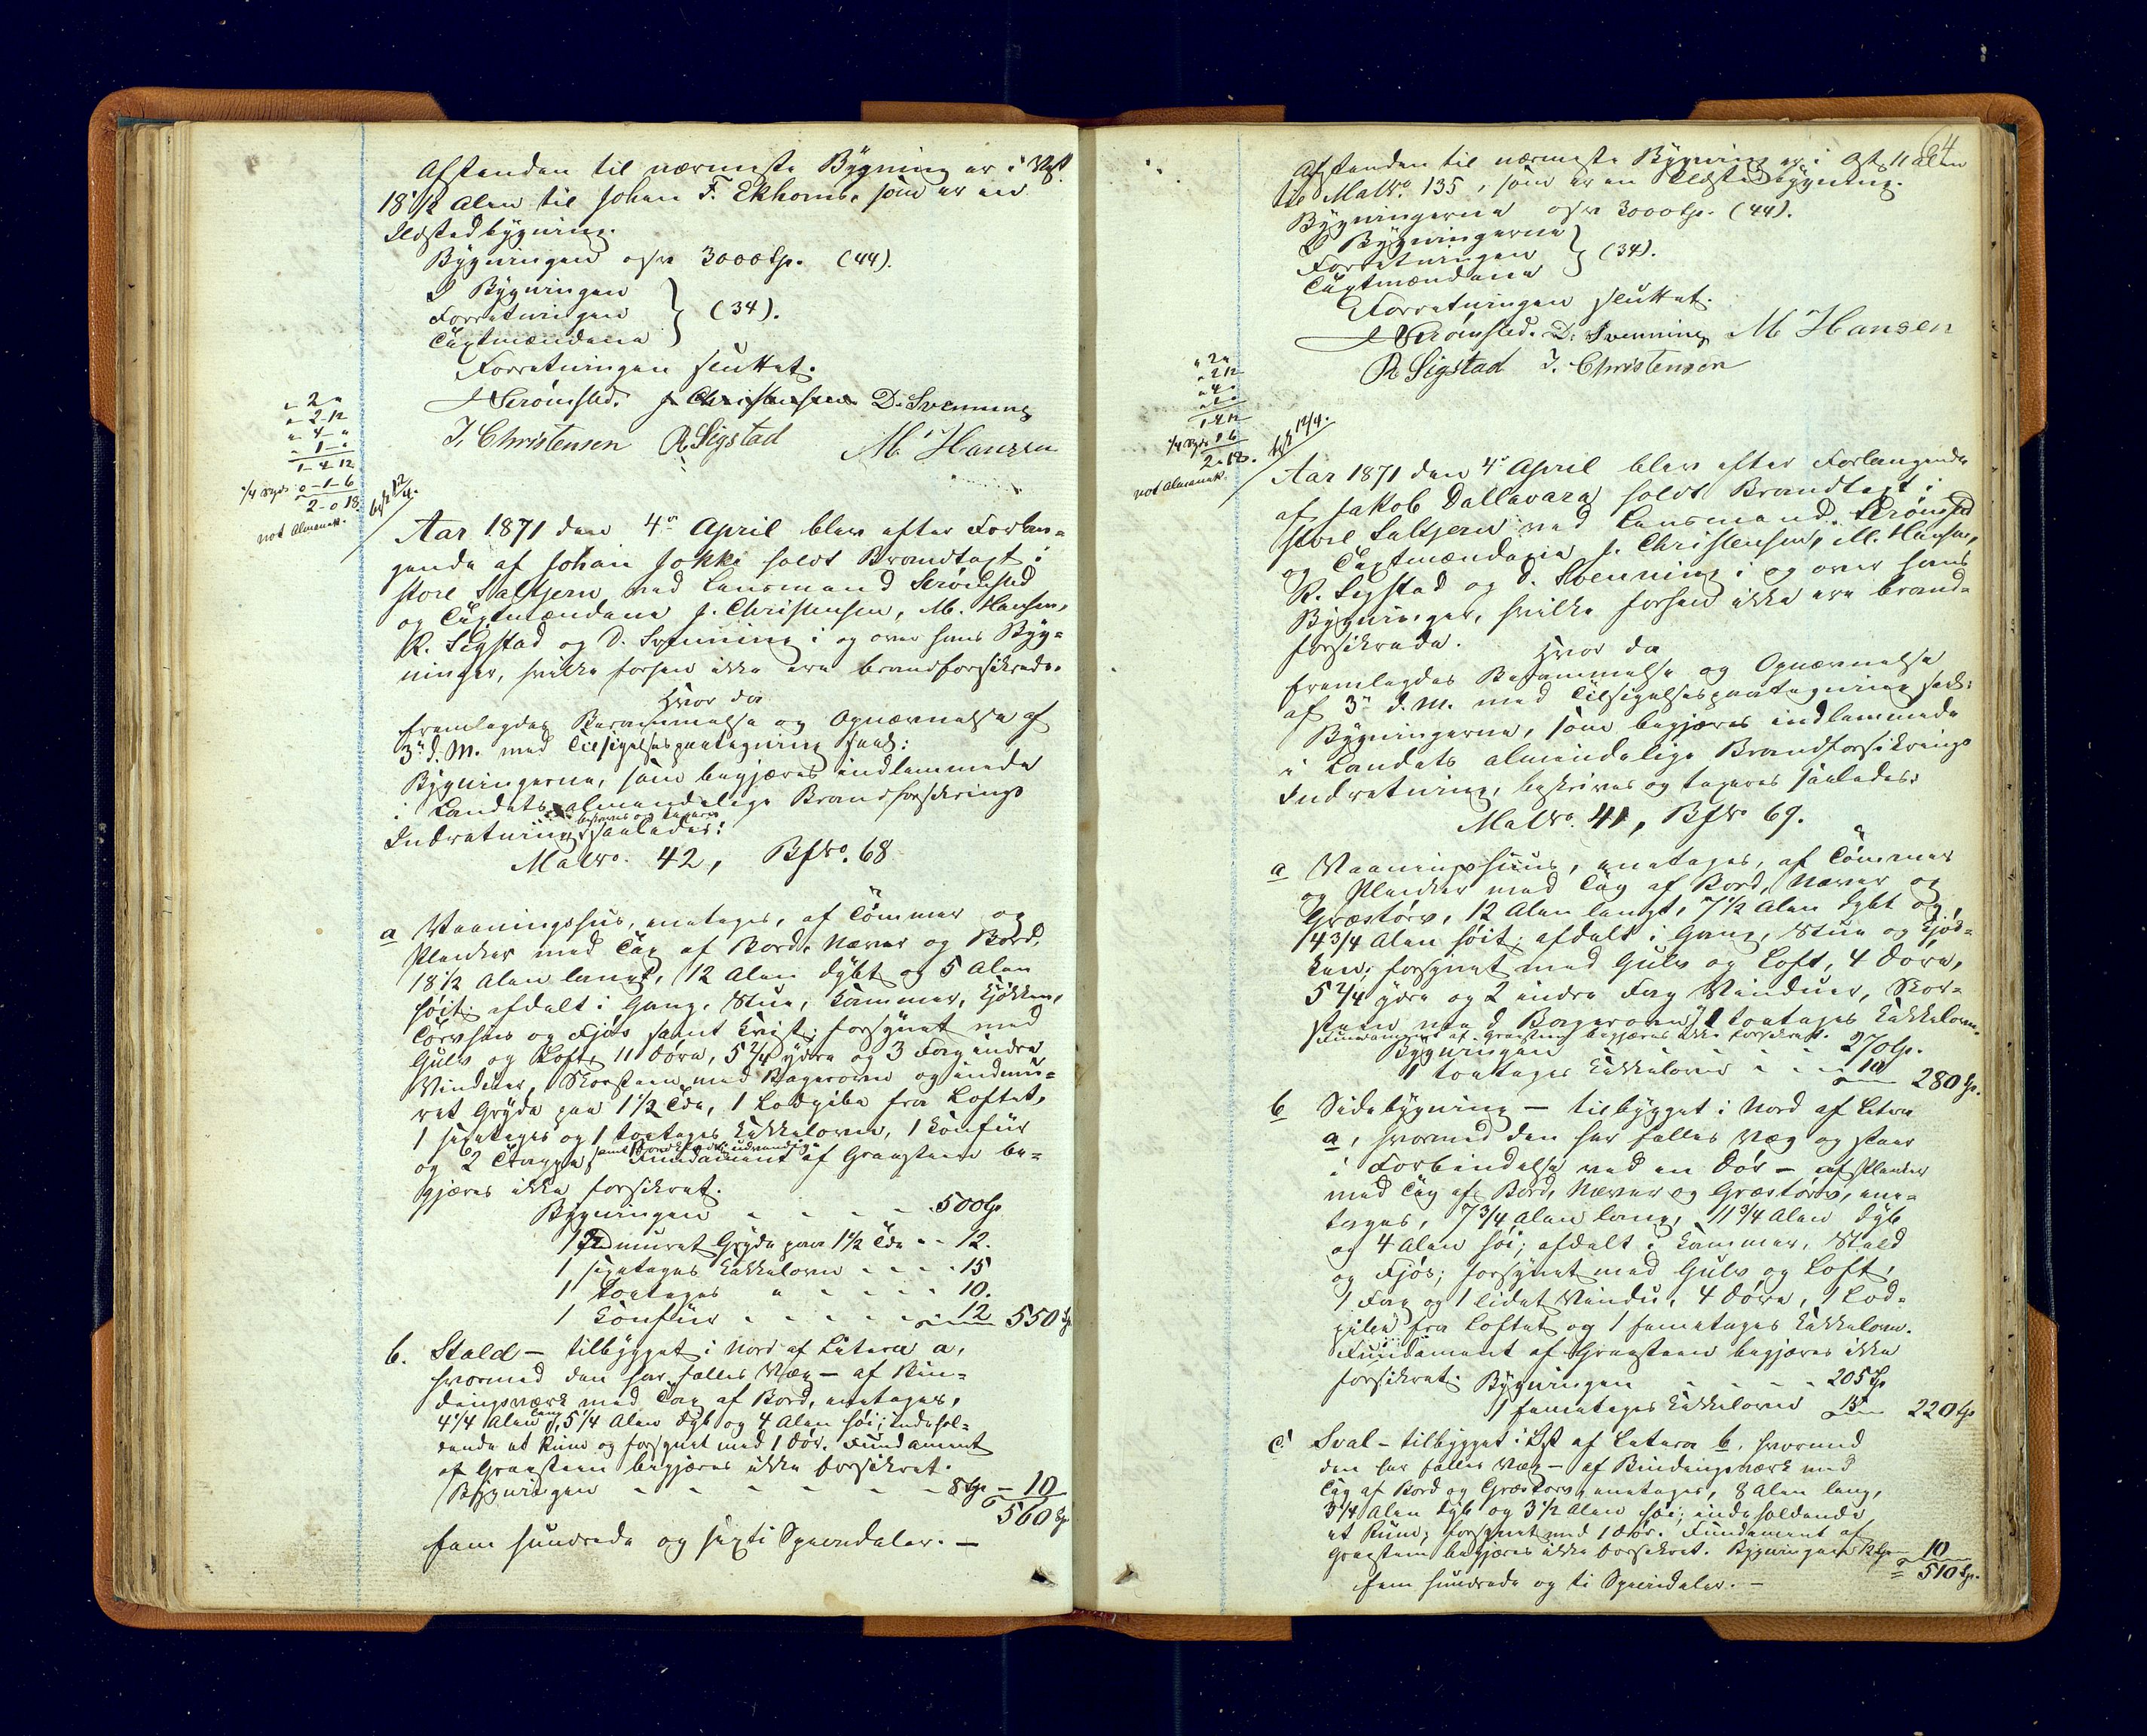 Afstanden til nærmeste Bygning er i Vest
18 1/2 Alen til Johan F. Ekhorns, som er en
Ildstedbygning.
Bygningen osv 3000 Sp. (44).
I Bygningen
Forretningen } (34).
Taxtmændene
Forretningen sluttet.
Strømsted. J. Christensen D. Svenning
J. Christensen R Sigstad M Hansen
" 2 "
" 2-12
" 4 - "
" 1 - "
1-4-12
1/4 0-1-6
2-0 18
not Almanak.
12/4.
Aar 1871 den 4de April blev efter Forlan-
gende af Johan Jokki holdt Brandtaxt i
store Saltjern ved Lensmand Strømsted
og Taxtmændene J. Christensen, M. Hansen,
R. Sigstad og D. Svenning i og over hans Byg-
ninger, hvilke forhen ikke ere brandforsikrede.
Hvor da
fremlagdes Berammelse og Opnævnelse af
3die d. M. med Tilsigelsespaategning saal:
Bygningerne, som begjæres indlemmede
i Landets almindelige Brandforsikrings
beskrives og taxeres
Indretning saaledes:
Mat No. 42, Bf No. 68
a Vaaningshus, enetages, af Tømmer og
Planker med Tag af Bord, Næver og Bord,
18 1/2 Alen langt, 12 Alen dybt og 5 Alen
høit; afdelt i Gang, Stue, Kammer, Kjøkken,
Tørvhus og Fjøs samt Kvist; forsynet med
Gulv og Loft, 11 Døre, 5 2/4 ydre og 3 Fag indre
Vinduer, Skorsteen med Bagerovn og indmu-
ret Gryde paa 1 1/2 Tde, 1 Lodpibe fra Loftet,
1 sexetages og 1 toetages Kakkelovn, 1 Komfur
og 2 Trapper, samt Bordklædn. udvendig. Fundament af Graasteen be-
gjæres ikke forsikret.
Bygningen " " " " 500 Sp
1 Indmuret Gryde paa 1 1/2 Tde " " 12.
1 sexetages Kakkelovn " " " 15
1 toetages " " " " 10.
1 Komfur " " " " 12 550 Sp
b. Stald - tilbygget i Nord af Litera a,
hvormed den har fælles Væg - af Bin-
dingsværk med Tag af Bord, enetages,
4 1/4 Alen lang, 5 1/4 Alen dyb og 4 Alen høi; indehol-
dende et Rum og forsynet med 1 Dør. Fundament
af Graasteen begjæres ikke forsikret.
Bygningen - - - - - - 8 Sp - 10
560 Sp
fem hundrede og sexti Speciedaler. -
64
Afstanden til nærmeste Bygning er i Øst 11 Alen
til Mat No. 135, som er en Ildstedbygning.
Bygningerne osv 3000 Sp. (44).
I Bygningerne
Forretningen } (34).
Taxtmændene
Forretningen sluttet.
Strømsted. D. Svenning M Hansen
R Sigstad J. Christensen
" 2 "
" 2 12
" 4 "
" 1 "
1-4 12
1/4 1 6
2-0 18.
not Almanak.
12/4.
Aar 1871 den 4de April blev efter Forlangende
af Jakob Dallavara holdt Brandtaxt i
store Saltjern ved Lensmand Strømsted
og Taxtmændene J. Christensen, M. Hansen,
R. Sigstad og D. Svenning i og over hans
Bygninger, hvilke forhen ikke ere brand-
forsikrede.
Hvor da
fremlagdes Berammelse og Opnævnelse
af 3die d. M. med Tilsigelsespaategning saal:
Bygningerne, som begjæres indlemmede
i Landets almindelige Brandforsikrings
Indretning, beskrives og taxeres saaledes:
Mat No. 41, Bf No 69.
a Vaaningshuus, enetages, af Tømmer
og Planker med Tag af Bord, Næver og
Græstørv, 12 Alen langt, 7 1/2 Alen dybt og
4 3/4 Alen høit; afdelt i Gang, Stue og Kjøk-
ken; forsynet med Gulv og Loft, 4 Døre,
5 2/4 ydre og 2 indre Fag Vinduer, Skor-
steen med Bagerovn, 1 toetages Kakkelovn.
Fundament af Graasteen begjæres ikke forsikret.
Bygningen 270 Sp.
1 toetages Kakkelovn " " " 10 280 Sp.
b Sidebygning - tilbygget i Nord af Litera
a, hvormed den har fælles Væg og staar
i Forbindelse ved en Dør - af Planker
med Tag af Bord, Næver og Græstørv, ene-
tages, 7 3/4 Alen lang, 11 3/4 Alen dyb
og 4 Alen høi; afdelt i Kammer, Stald
og Fjøs; forsynet med Gulv og Loft,
1 Fag og 1 lidet Vindu, 4 Døre, 1 Lod-
pibe fra Loftet og 1 femetages Kakkelovn.
Fundament af Graasteen begjæres ikke
forsikret. Bygningen " " " 205 Sp
1 femetages Kakkelovn 15 220 Sp
c. Sval - tilbygget i Øst af Litera b, hvormed
den har fælles Væg - af Bindingsværk med
Tag af Bord og Græstørv, enetages, 8 Alen lang,
3 1/4 Alen dyb og 3 1/2 Alen høi; indeholdende
et Rum; forsynet med 1 Dør. Fundament af
Graasteen begjæres ikke forsikret. Bygningen 12 Sp 10
510 Sp.
fem hundrede og ti Speciedaler. -